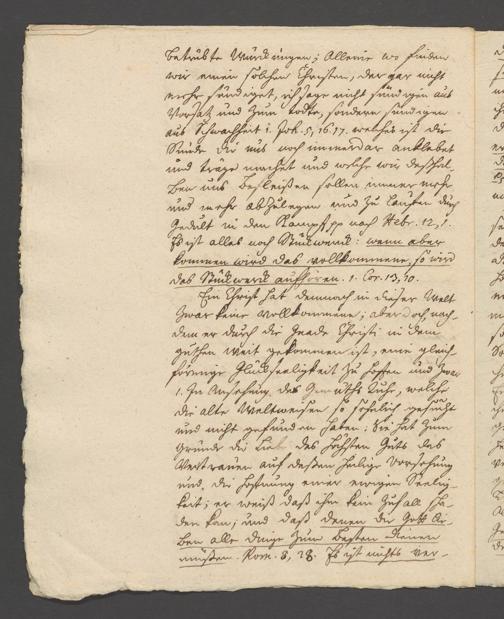 betrübte Würckungen; Alleine wo finden
wir einen solchen Christen, der gar nicht
mehr sündiget, ich sage nicht sündigen aus
Vorsatz und zum Tode, sondern sündigen
aus Schwachheit 1. Joh. 5, 16. 17. welches ist die
Sünde die uns noch immerdar anklebet
und träge machet und welche wir deßhal-
ben uns befleißen sollen immer mehr
und mehr abzulegen und zu lauffen durch
Gedult in dem Kampf pp nach Hebr. 12, 1.
Es ist alles noch Stückwerck: wenn aber
kommen wird das vollkommene, so wird
das Stückwerck aufhören. 1. Cor. 13, 10.
Ein Christ hat dennoch in dieser Welt
zwar keine vollkommene; aber doch, nach-
dem er durch die Gnade Christi in dem
guthen weit gekommen ist, eine gleich-
förmige Glückseeligkeit zu hoffen und zwar
1. In Ansehung des Gemüths Ruhe, welche
die alte Weltweisen so sehnlich gesucht
und nicht gefunden haben; Sie hat zum
Grunde die Liebe des höchsten Guts das
Vertrauen auf deßen heilige Vorsehung
und die Hofnung einer ewigen Seelig-
keit; er weiß daß ihm kein Zufall scha-
den kan; und daß denen die Gott lie-
ben alle Dinge zum besten dienen
müßen. Rom. 8, 28. Es ist nichts ver-